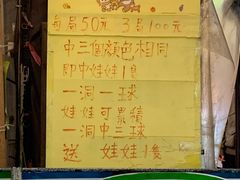 每局50元 3局100元
中三個顏色相同
即中娃娃1隻
一洞一球
娃娃可累積
一洞中三球
送 娃娃1隻